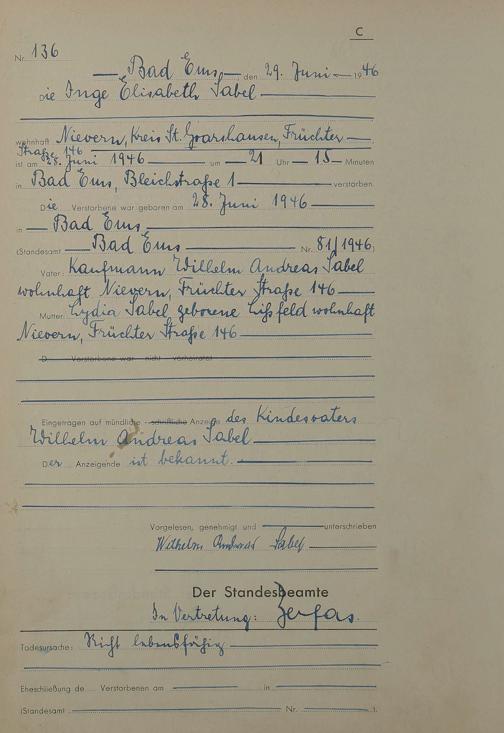 C
Nr. 136
Bad Ems, den 29. Juni 1946
Die Inge Elisabeth Sabel
wohnhaft Nievern, Kreis St. Goarshausen, Früchter
Straße 146
ist am 28. Juni 1946 um 21 Uhr 15 Minuten
in Bad Ems, Bleichstraße 1 verstorben.
Die Verstorbene war geboren am 28. Juni 1946
in Bad Ems
(Standesamt Bad Ems Nr. 81/1946)
Vater: Kaufmann Wilhelm Andreas Sabel
wohnhaft Nievern, Früchter Straße 146
Mutter: Lydia Sabel geborene Lißfeld wohnhaft
Nievern, Früchter Straße 146
D Verstorbene war nicht verheiratet
Eingetragen auf mündliche schriftliche Anzeige des Kindesvaters
Wilhelm Andreas Sabel
Der Anzeigende ist bekannt.
Vorgelesen, genehmigt und unterschrieben
Wilhelm Andreas Sabel
Der Standesbeamte
In Vertretung: Zerfas
Todesursache: Nicht lebensfähig
Eheschließung de Verstorbenen am in
(Standesamt Nr. ).